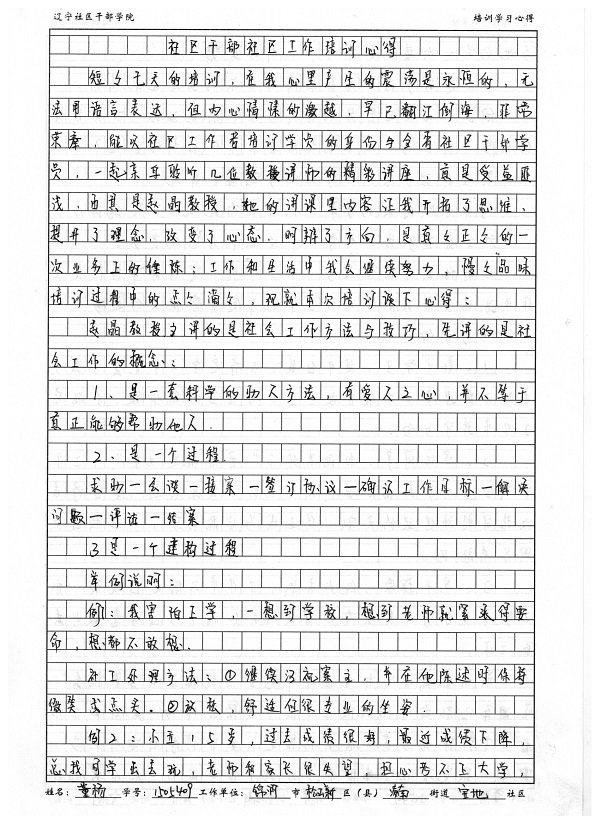 辽宁社区干部学院 培训学习心得
社区干部社区工作培训心得
短短七天的培训,在我心里产生的震荡是永恒的,无
法用语言表达,但内心情愫的激越,早已翻江倒海,非常
荣幸,能以社区工作者培训学员的身份与全省社区干部学
员,一起亲耳聆听几位教授讲师的精彩讲座,真是受益匪
浅,尤其是赵晶教授,她的讲课里内容让我开拓了思维、
提升了理念,改变了心态,明辨了方向,是真真正正的一
次业务上的 ;工作和生活中我会继续努力,慢慢品味
培训过程中的点点滴滴,现就本次培训谈下心得:
赵晶教授主讲的是社会工作方法与技巧,先讲的是社
会工作的概念:
1、是一套科学的助人方法,有爱人之心,并不等于
真正能够帮助他人.
2、是一个过程
求助—会谈—接案—签订协议—确认工作目标—解决
问题—评估—结案
3是一个建构过程
举例说明:
例:我害怕上学,一想到学校,想到老师就紧张得要
命,想都不敢想.
社工处理方法:①继续 视案主,并在他陈述时保持
微笑或点头.②放松,舒适但很专业的坐姿.
例2:小五15岁,过去成绩很好,最近成绩下降,
总找同学出去玩,老师和家长很失望,担心考不上大学,
姓名:董杨 学号:1505409 工作单位:锦州 市 松山新 区(县) 街道 宝地 社区